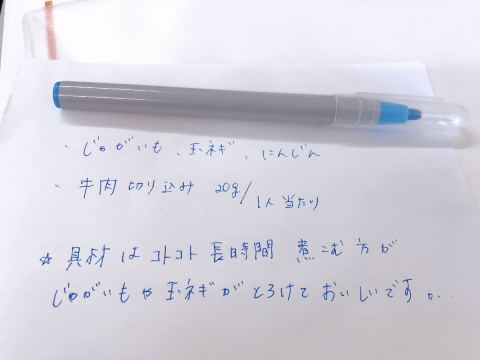 ・じゃがいも、玉ネギ、にんじん
・牛肉切り込み 20g/1人当たり
☆具材はコトコト長時間煮こむ方が
じゃがいもや玉ネギがとろけておいしいです。..